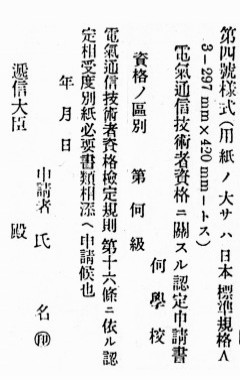 第四號樣式(用紙ノ大サハ日本標準規格A
3-297mm×420mm-トス)
電氣通信技術者資格ニ關スル認定申請書
何學校
資格ノ區別 第何級
電氣通信技術者資格檢定規則第十六條ニ依ル認
定相受度別紙必要書類相添ヘ申請候也
年月日
申請者氏名㊞
遞信大臣 殿